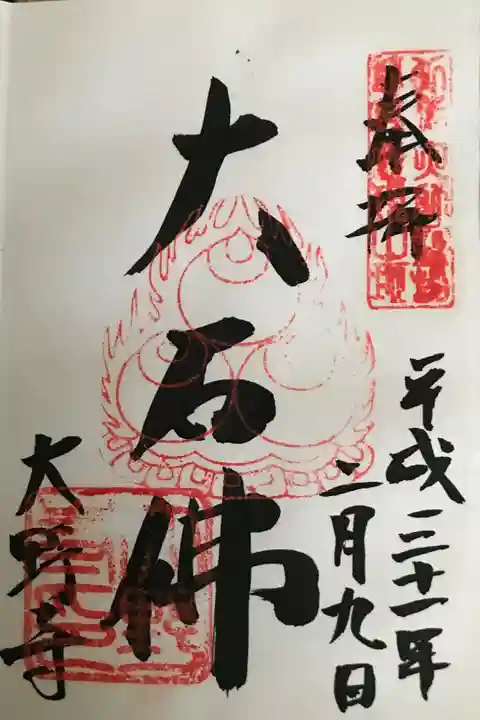 奉拝
平成三十一年
二月九日
大石佛
大野寺